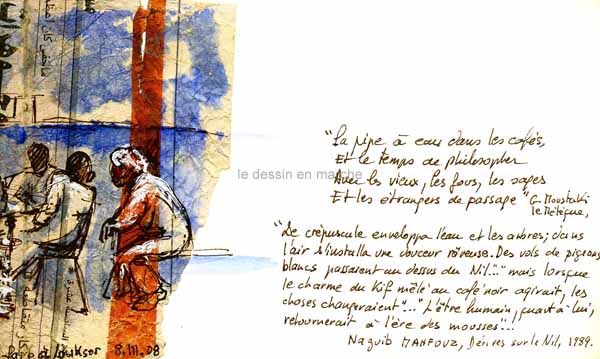 "La pipe à eau dans les cafés,
Et le temps de philosopher
Avec les vieux, les fous, les sages
Et les étrangers de passage" G. Moustaki
le Métèque,
le dessin en marche
"Le crépuscule enveloppa l'eau et les arbres; dans
l'air s'installa une douceur rêveuse. Des vols de pigeons
blancs passaient au dessus du Nil..." mais lorsque
le charme du Kif mêlé au café noir agirait, les
choses changeraient "..." L'être humain, quant à lui,
retournerait à l'ère des mousses"...
Naguib MAHFOUZ, Dérives sur le Nil, 1989.
à Louksor 8.III.08